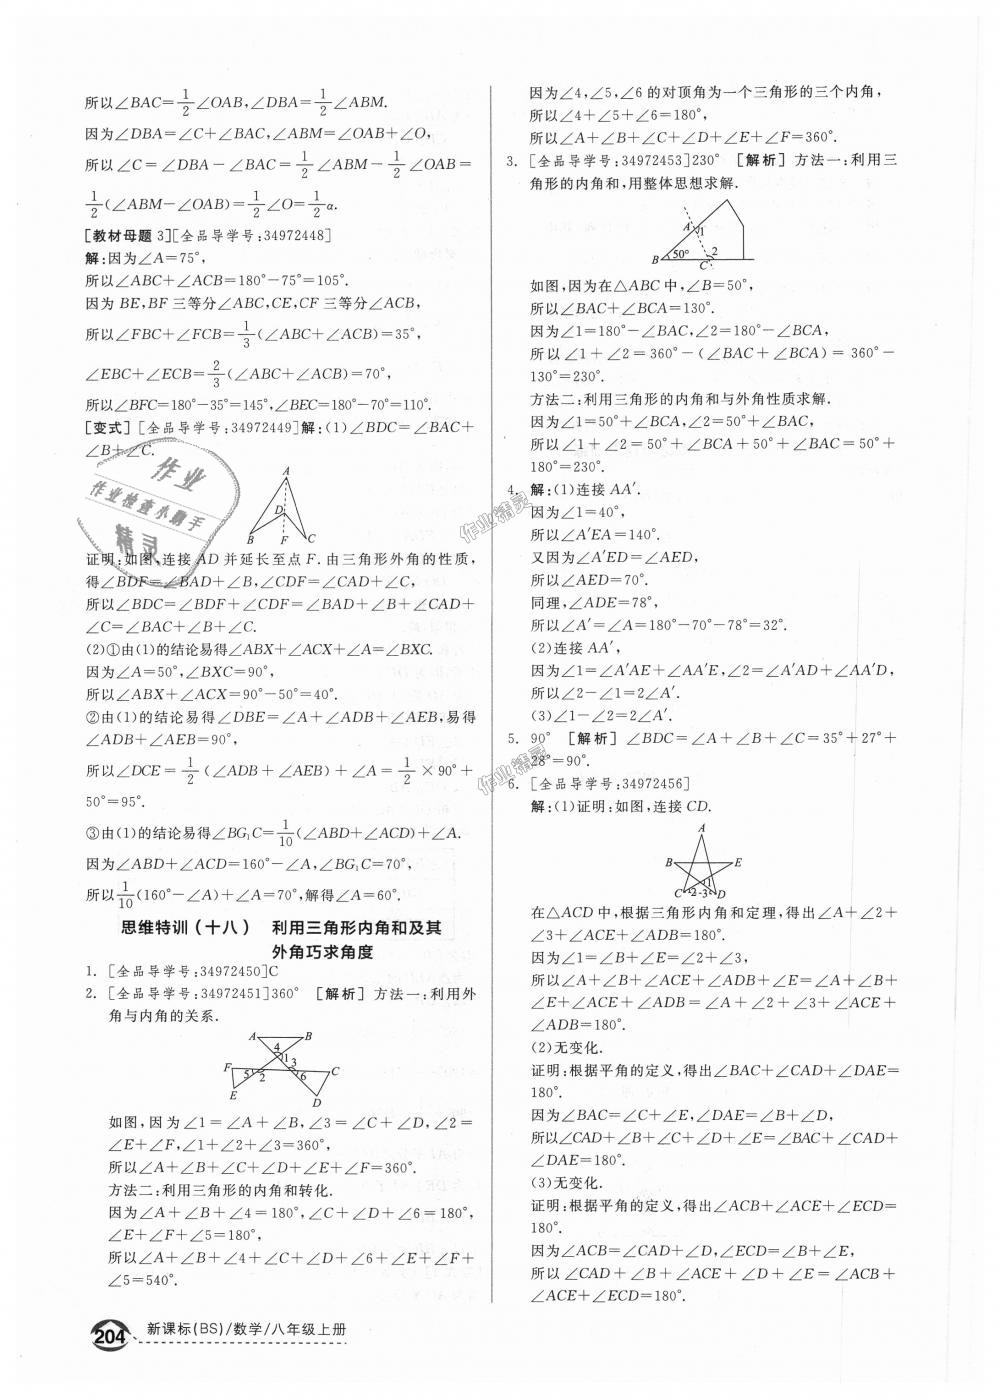 所以∠BAC=1/2∠OAB,∠DBA=1/2∠ABM.
因为∠DBA=∠C+∠BAC,∠ABM=∠OAB+∠O,
所以∠C=∠DBA-∠BAC=1/2∠ABM-1/2∠OAB=
1/2(∠ABM-∠OAB)=1/2∠O=1/2α.
[教材母题3][全品导学号:34972448]
解:因为∠A=75°,
所以∠ABC+∠ACB=180°-75°=105°.
因为BE,BF三等分∠ABC,CE,CF三等分∠ACB,
所以∠FBC+∠FCB=1/3(∠ABC+∠ACB)=35°,
∠EBC+∠ECB=2/3(∠ABC+∠ACB)=70°,
所以∠BFC=180°-35°=145°,∠BEC=180°-70°=110°.
[变式][全品导学号:34972449]解:(1)∠BDC=∠BAC+
∠B+∠C.
A
D
B F C
证明:如图,连接AD并延长至点F.由三角形外角的性质,
得∠BDF=∠BAD+∠B,∠CDF=∠CAD+∠C,
所以∠BDC=∠BDF+∠CDF=∠BAD+∠B+∠CAD+
∠C=∠BAC+∠B+∠C.
(2)①由(1)的结论易得∠ABX+∠ACX+∠A=∠BXC.
因为∠A=50°,∠BXC=90°,
所以∠ABX+∠ACX=90°-50°=40°.
②由(1)的结论易得∠DBE=∠A+∠ADB+∠AEB,易得
∠ADB+∠AEB=90°,
所以∠DCE=1/2(∠ADB+∠AEB)+∠A=1/2×90°+
50°=95°.
③由(1)的结论易得∠BG₁C=1/10(∠ABD+∠ACD)+∠A.
因为∠ABD+∠ACD=160°-∠A,∠BG₁C=70°,
所以1/10(160°-∠A)+∠A=70°,解得∠A=60°.
思维特训(十八) 利用三角形内角和及其
外角巧求角度
1. [全品导学号:34972450]C
2. [全品导学号:34972451]360° [解析]方法一:利用外
角与内角的关系.
A B
4
1
3
F 5 2 6 C
E
D
如图,因为∠1=∠A+∠B,∠3=∠C+∠D,∠2=
∠E+∠F,∠1+∠2+∠3=360°,
所以∠A+∠B+∠C+∠D+∠E+∠F=360°.
方法二:利用三角形的内角和转化.
因为∠A+∠B+∠4=180°,∠C+∠D+∠6=180°,
∠E+∠F+∠5=180°,
所以∠A+∠B+∠4+∠C+∠D+∠6+∠E+∠F+
∠5=540°.
204 新课标(BS)/数学/八年级上册
因为∠4,∠5,∠6的对顶角为一个三角形的三个内角,
所以∠4+∠5+∠6=180°,
所以∠A+∠B+∠C+∠D+∠E+∠F=360°.
3. [全品导学号:34972453]230° [解析]方法一:利用三
角形的内角和,用整体思想求解.
A 1
B 50° C 2
如图,因为在△ABC中,∠B=50°,
所以∠BAC+∠BCA=130°.
因为∠1=180°-∠BAC,∠2=180°-∠BCA,
所以∠1+∠2=360°-(∠BAC+∠BCA)=360°-
130°=230°.
方法二:利用三角形的内角和与外角性质求解.
因为∠1=50°+∠BCA,∠2=50°+∠BAC,
所以∠1+∠2=50°+∠BCA+50°+∠BAC=50°+
180°=230°.
4. 解:(1)连接AA′.
因为∠1=40°,
所以∠A′EA=140°.
又因为∠A′ED=∠AED,
所以∠AED=70°.
同理,∠ADE=78°,
所以∠A′=∠A=180°-70°-78°=32°.
(2)连接AA′,
因为∠1=∠A′AE+∠AA′E,∠2=∠A′AD+∠AA′D,
所以∠2-∠1=2∠A′.
(3)∠1-∠2=2∠A′.
5. 90° [解析]∠BDC=∠A+∠B+∠C=35°+27°+
28°=90°.
6. [全品导学号:34972456]
解:(1)证明:如图,连接CD.
A
B E
1
C 2 3 D
在△ACD中,根据三角形内角和定理,得出∠A+∠2+
∠3+∠ACE+∠ADB=180°.
因为∠1=∠B+∠E=∠2+∠3,
所以∠A+∠B+∠ACE+∠ADB+∠E=∠A+∠B+
∠E+∠ACE+∠ADB=∠A+∠2+∠3+∠ACE+
∠ADB=180°.
(2)无变化.
证明:根据平角的定义,得出∠BAC+∠CAD+∠DAE=
180°.
因为∠BAC=∠C+∠E,∠DAE=∠B+∠D,
所以∠CAD+∠B+∠C+∠D+∠E=∠BAC+∠CAD+
∠DAE=180°.
(3)无变化.
证明:根据平角的定义,得出∠ACB+∠ACE+∠ECD=
180°.
因为∠ACB=∠CAD+∠D,∠ECD=∠B+∠E,
所以∠CAD+∠B+∠ACE+∠D+∠E=∠ACB+
∠ACE+∠ECD=180°.
作业
作业检查小助手
精灵
作业精灵
作业精灵